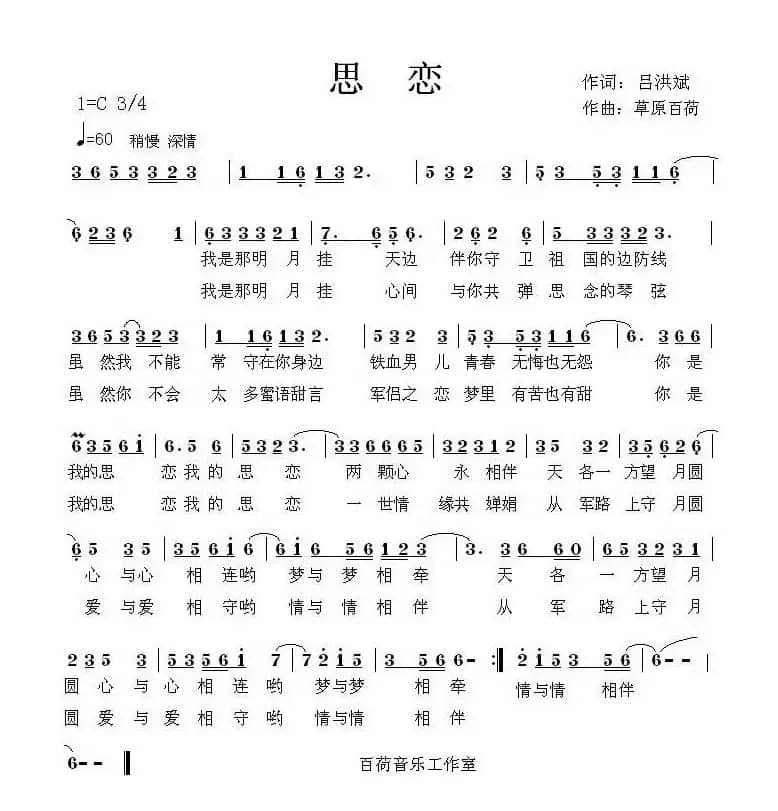 思 恋
作词：吕洪斌
1=C 3/4
作曲：草原百荷
♩=60 稍慢 深情
3 6 5 3 3 2 3 | 1 1 6 1 3 2. | 5 3 2 3 | 5 3 5 3 1 1 6 |
6 2 3 6 1 | 6 3 3 3 2 1 | 7. 6 5 6. | 2 6 2 6 | 5 3 3 3 2 3. |
我是那明 月 挂 天边 伴你守 卫 祖 国的边防线
我是那明 月 挂 心间 与你共 弹 思 念的琴 弦
3 6 5 3 3 2 3 | 1 1 6 1 3 2. | 5 3 2 3 | 5 3 5 3 1 1 6 | 6. 3 6 6 |
虽 然我 不能 常 守在你身边 铁血男 儿 青春 无悔也无怨 你 是
虽 然你 不会 太 多蜜语甜言 军侣之 恋 梦里 有苦也有甜 你 是
6 3 5 6 i | 6. 5 6 | 5 3 2 3. | 3 3 6 6 6 5 | 3 2 3 1 2 | 3 5 3 5 | 3 5 6 2 6 |
我的思 恋 我 的 思 恋 两 颗心 永 相伴 天 各一 方望 月圆
我的思 恋 我 的 思 恋 一 世情 缘共 婵娟 从 军路 上守 月圆
6 5 3 5 | 3 5 6 i 6 | 6 i 6 5 6 1 2 3 | 3. 3 6 | 6 6 0 | 5 3 2 3 1 |
心 与心 相 连哟 梦与 梦 相 牵 天 各 一 方望 月
爱 与爱 相 守哟 情与 情 相 伴 从 军 路 上守 月
2 3 5 3 | 5 3 5 6 i 7 | 7 2 i 5 | 3 5 6 6 - :| 2 i 5 3 5 6 | 6 - - |
圆 心 与 心 相 连 哟 梦与梦 相 牵 情与情 相伴
圆 爱 与 爱 相 守 哟 情与情 相 伴
6 - - ‖ 百荷音乐工作室